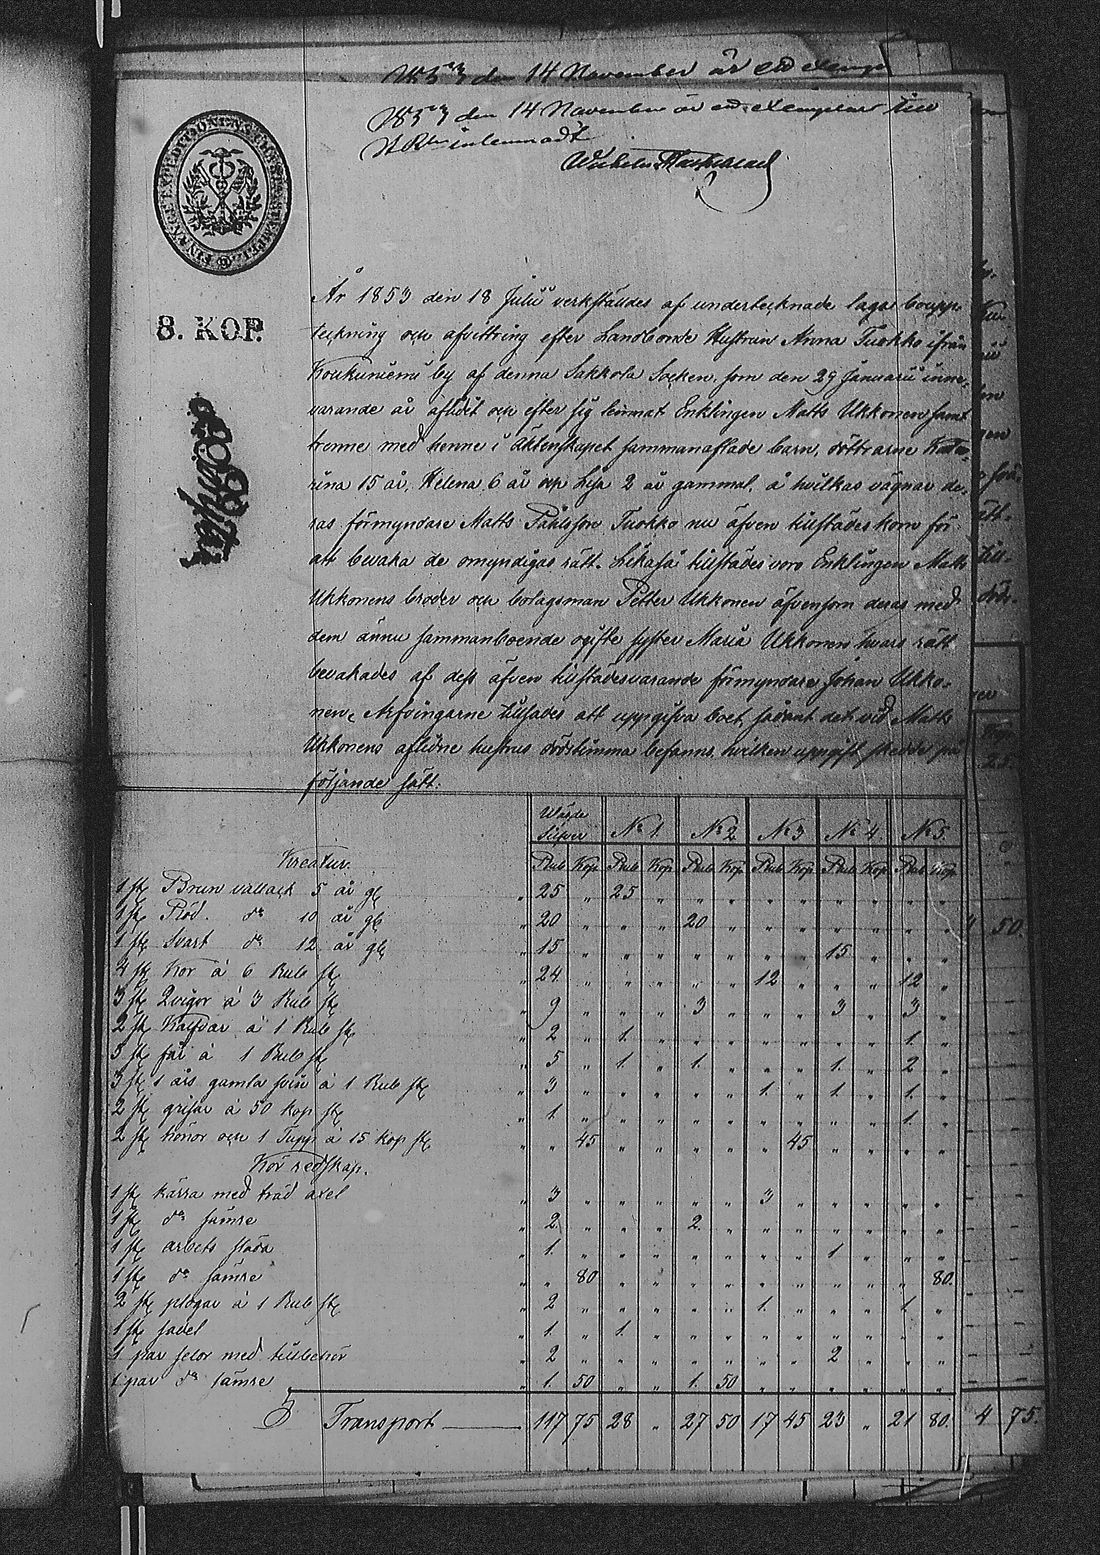 1853 den 14 November är ett exemplar
1853 den 14 November är ett exemplar till
inlemnadt
FINANCE EXPEDITIONENS
8. KOP.
År 1853 den 18 Julii verkställdes af undertecknade laga boupp-
teckning och afvittring efter Landbonde Hustrun Anna Tuokko ifrån
Koukuniemi by af denna Sakkola Socken, som den 29 Januarii inne-
varande år aflidit och efter sig lemnat Enklingen Matts Ukkonen samt
trenne med henne i äktenskapet sammanaflade barn, döttrarne Kata-
rina 15 år, Helena 6 år och Lisa 2 år gammal, å hvilkas vägnar de-
ras förmyndare Matts Påhlsson Tuokko nu äfven tillstädeskom för
att bevaka de omyndigas rätt. Likaså tillstädes voro Enklingen Matts
Ukkonens broder och bolagsman Petter Ukkonen äfvensom deras med
dem ännu sammanboende ogifte syster Maria Ukkonen hvars rätt
bevakades af dess äfven tillstädesvarande förmyndare Johan Ukko-
nen, Arfvingarne tillsades att uppgifva boet sådant det vid Matts
Ukkonens aflidne hustrus dödstimma befanns, hvilken uppgift skedde på
följande sätt:
Wärde Silfver No 1 No 2 No 3 No 4 No 5
Kreatur. Rub Kop Rub Kop Rub Kop Rub Kop Rub Kop Rub Kop
1 st Brun vallack 5 år gl " 25 " 25 " " " " " " " " "
1 st Röd do 10 år gl " 20 " " " 20 " " " " " " "
1 st Svart do 12 år gl " 15 " " " " " " " 15 " " "
4 st Kor à 6 Rub st " 24 " " " " " 12 " " " 12 "
3 st Qvigor à 3 Rub st " 9 " " " 3 " " " 3 " 3 "
2 st Kalfvar à 1 Rub st " 2 " 1 " " " " " " " 1 "
5 st får à 1 Rub st " 5 " 1 " 1 " " " 1 " 2 "
3 st 1 års gamla svin à 1 Rub st " 3 " " " " " 1 " 1 " 1 "
2 st grisar à 50 Kop st " 1 " " " " " " " " " 1 "
2 st hönor och 1 Tupp à 15 Kop st " " 45 " " " " " 45 " " " "
Kör redskap.
1 st kärra med träd axel " 3 " " " " " 3 " " " " "
1 st do sämre " 2 " " " 2 " " " " " " "
1 st arbets släda " 1 " " " " " " " 1 " " "
1 st do sämre " " 80 " " " " " " " " " 80
2 st plogar à 1 Rub st " 2 " " " " " 1 " " " 1 "
1 st " 1 " 1 " " " " " " " " "
1 par selor med tillbehör " 2 " " " " " " " 2 " " "
1 par do sämre " 1 50 " " 1 50 " " " " " "
Transport 117 75 28 " 27 50 17 45 23 " 21 80
4 50
4 75